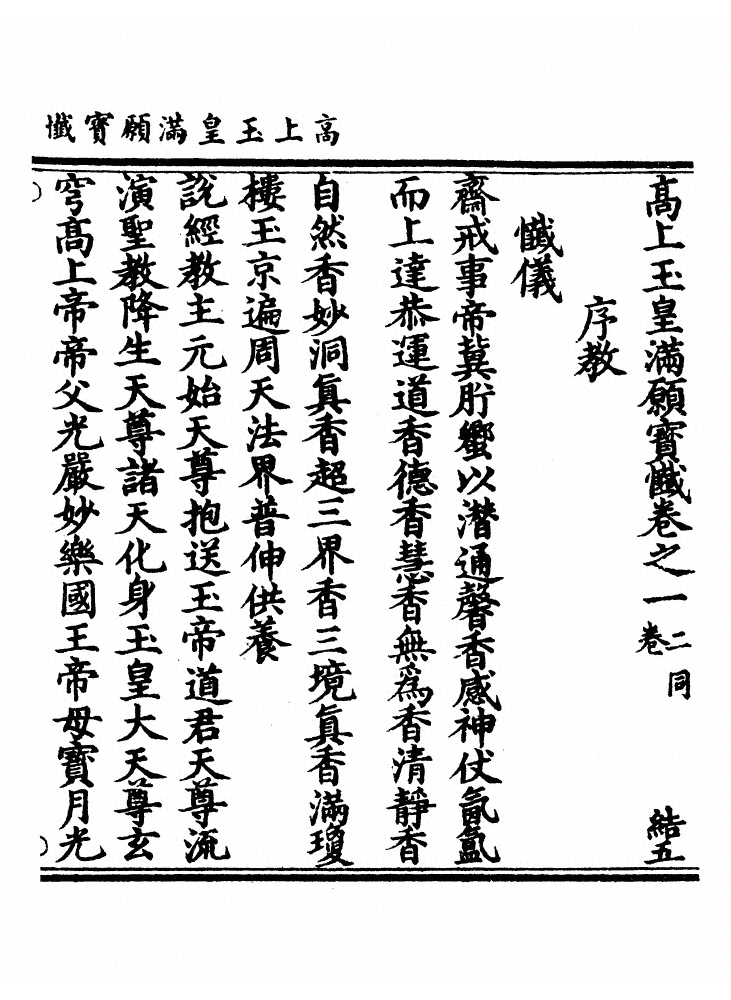 高上玉皇滿願寶懺
高上玉皇滿願寶懺卷之一 二卷同 結五
序教
懺儀
齋戒事帝冀肸蠁以潛通馨香感神伏氤氳
而上達恭運道香德香慧香無為香清靜香
自然香妙洞真香超三界香三境真香滿瓊
樓玉京遍周天法界普伸供養
說經教主元始天尊抱送玉帝道君天尊流
演聖教降生天尊諸天化身玉皇大天尊玄
穹高上帝帝父光嚴妙樂國王帝母寶月光